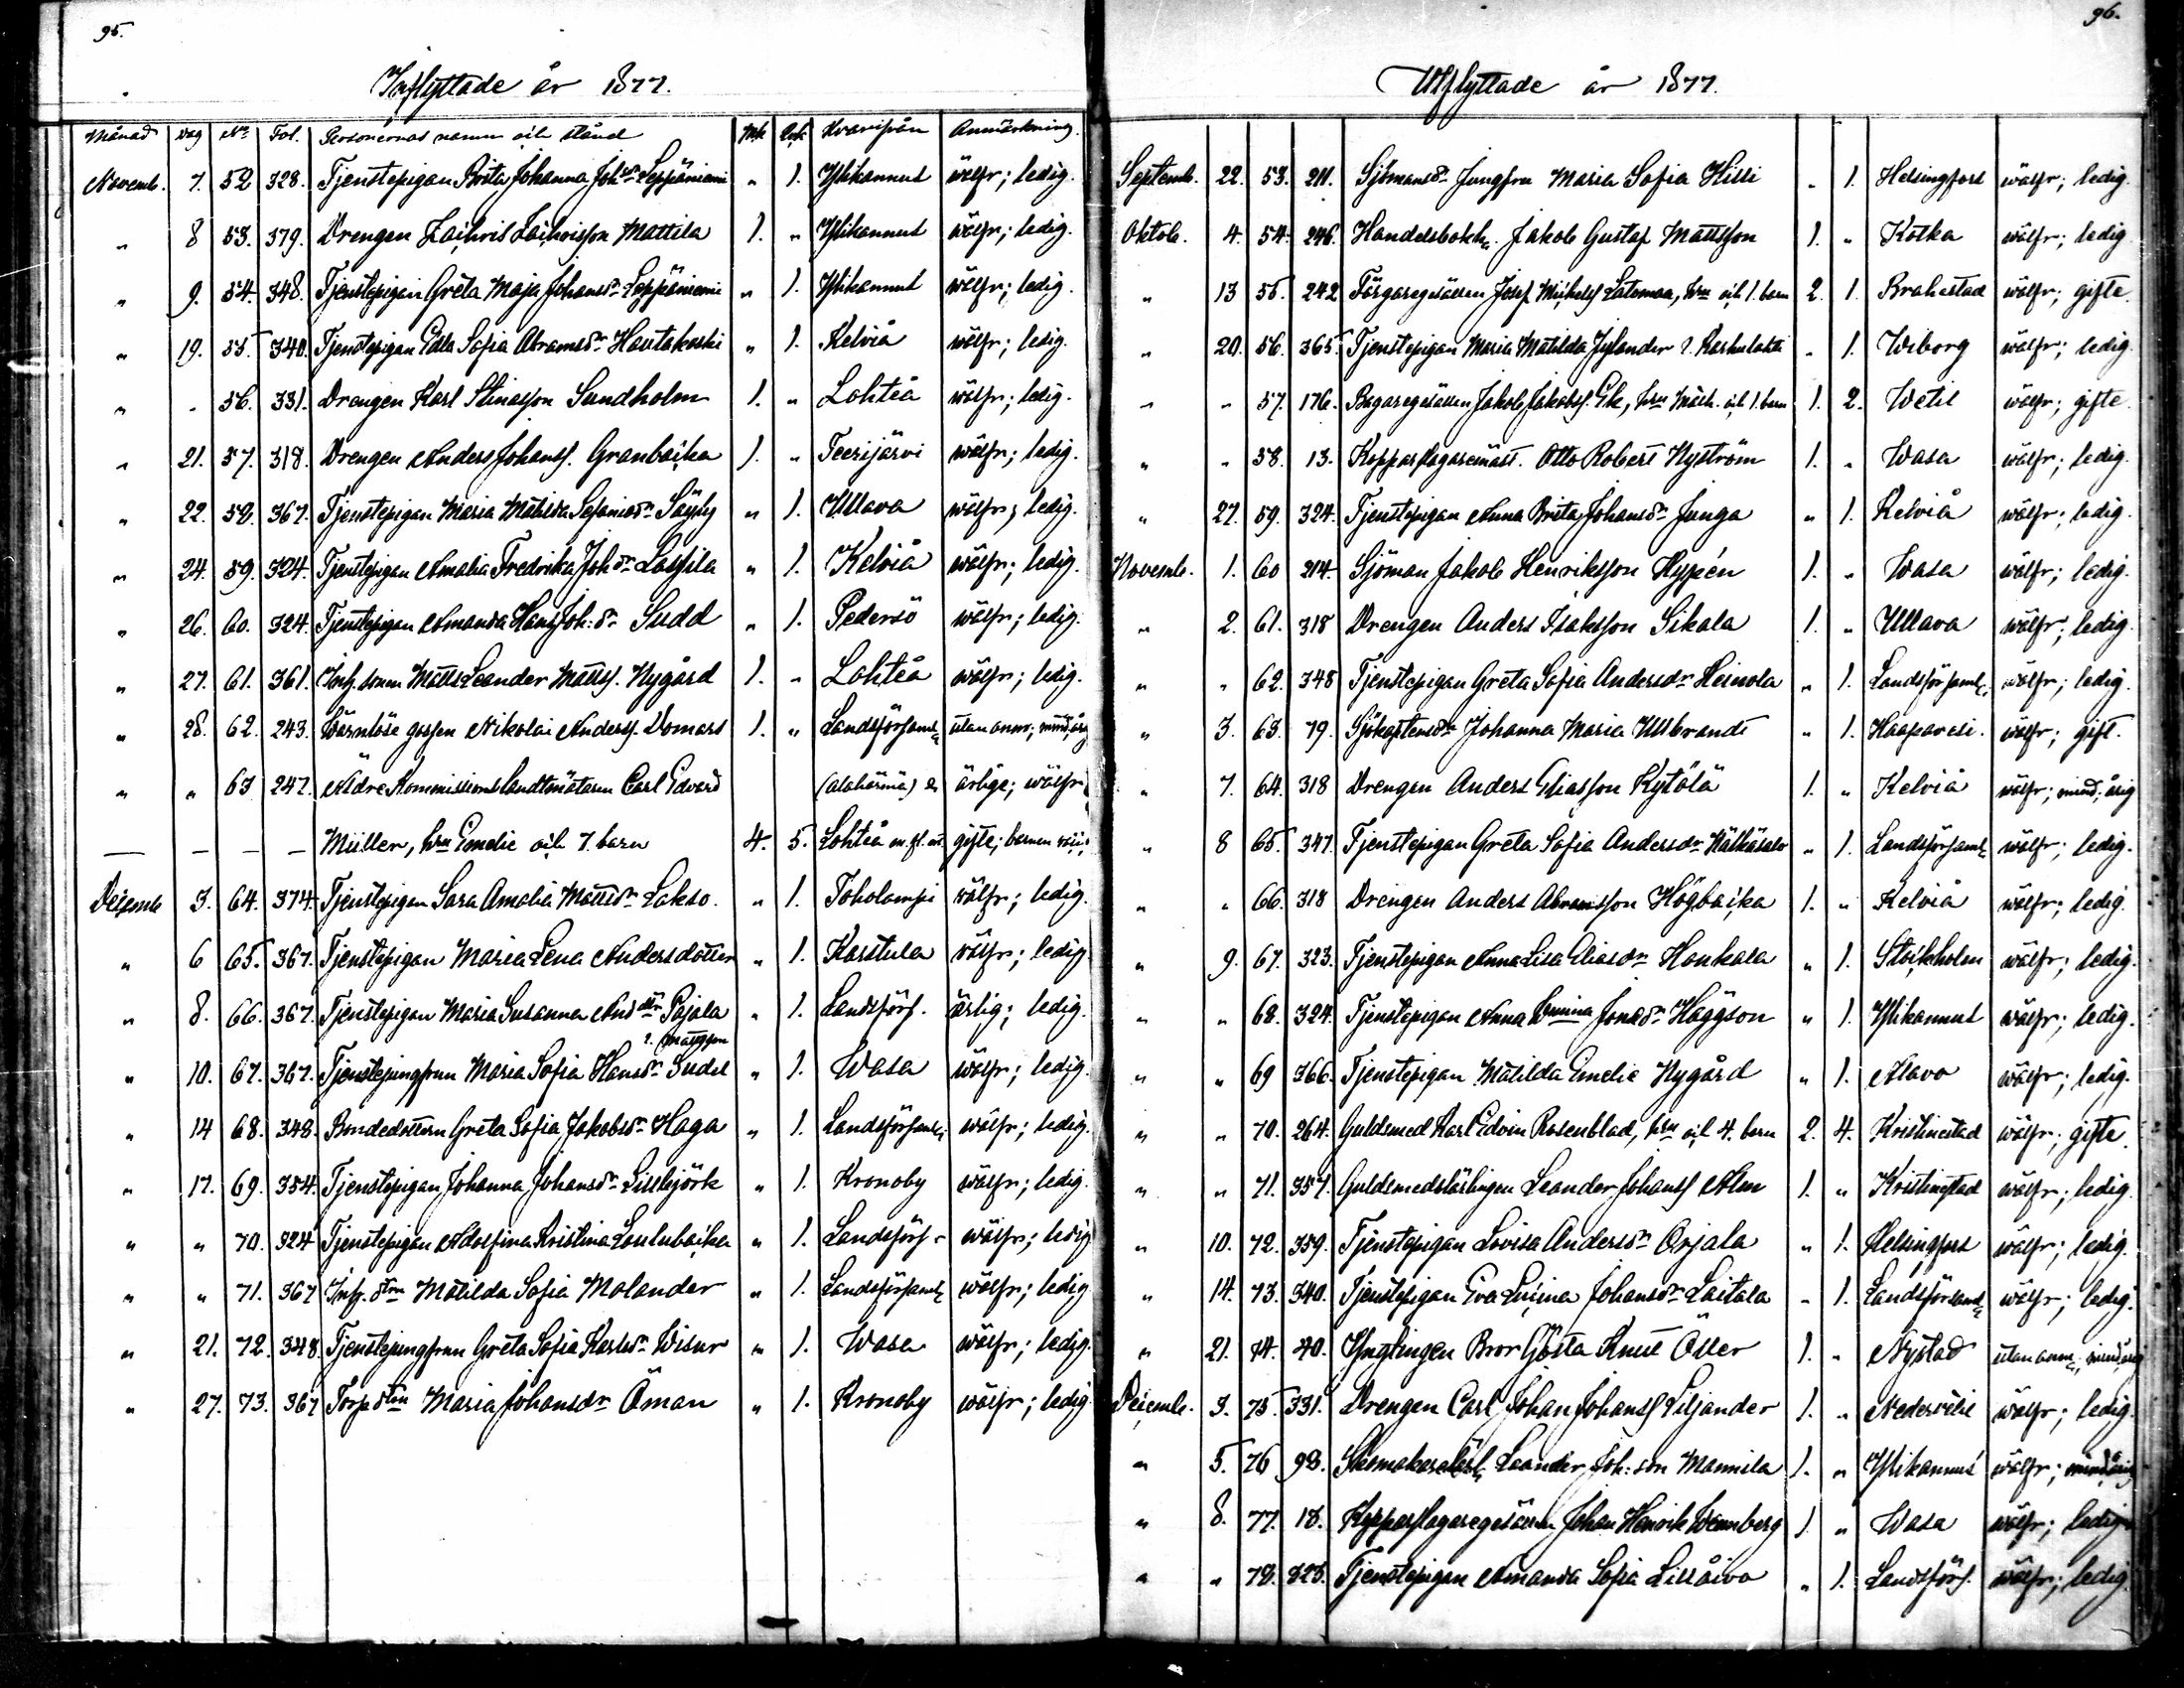 95.
Inflyttade år 1877.
Månad Dag No Fol. Personernas namn och stånd Mk. Qvk. Hvarifrån Anmärkning.
Novemb. 7. 52 328. Tjenstepigan Brita Johanna Joh:dr Leppäniemi " 1. Ylikannus wälfr; ledig.
" 8 53. 379. Drengen Zachris Zachrisson Mattila 1. " Ylikannus wälfr; ledig.
" 9. 54. 348. Tjenstepigan Greta Maja Johansdr Leppäniemi " 1. Ylikannus wälfr; ledig.
" 19. 55. 340. Tjenstepigan Edla Sofia Abramsdr Hautakoski " 1. Kelviå wälfr; ledig.
" - 56. 331. Drengen Karl Stinasson Sundholm 1. " Lohteå wälfr; ledig.
" 21. 57. 318. Drengen Anders Johanss. Granbacka 1. " Teerijärvi wälfr; ledig.
" 22. 58. 367. Tjenstepigan Maria Matilda Sefaniasdr Säyly " 1. Ullava wälfr; ledig.
" 24. 59. 324. Tjenstepigan Amalia Fredrika Johdr Lassila " 1. Kelviå wälfr; ledig.
" 26. 60. 324. Tjenstepigan Amanda Hans Joh:dr Sudd " 1. Pedersö wälfr; ledig.
" 27. 61. 361. Inh. sonen Matts Leander Mattss. Nygård 1. " Lohteå wälfr; ledig.
" 28. 62. 243. Wärnlöse gossen Nikolai Anderss. Domars 1. " Landsförsaml. utan anm; mind.årig
" " 63 247. Äldre Kommissionslandtmätaren Carl Edvard (Alahärmä) & ärlige; wälfr;
— — — — Müller, hru Emelie och 7 barn 4. 5. Lohteå m.fl. gifte; barnen
Decemb 3. 64. 374. Tjenstepigan Sara Amalia Mattsdr Lakso. " 1. Toholampi wälfr; ledig.
" 6 65. 367. Tjenstepigan Maria Lena Andersdotter " 1. Karstula wälfr; ledig
" 8. 66. 367. Tjenstepigan Maria Susanna And:dr Pajala " 1. Landsförs. ärlig; ledig.
l. Mattsson
" 10. 67. 367. Tjenstejungfrun Maria Sofia Hansdr Sudd " 1. Wasa wälfr; ledig.
" 14 68. 348. Bondedottern Greta Sofia Jakobsdr Haga " 1. Landsförsaml. wälfr; ledig.
" 17. 69. 354. Tjenstepigan Johanna Johansdr Lillbjörk " 1. Kronoby wälfr; ledig.
" " 70. 324 Tjenstepigan Adolfina Kristina Loulubacka " 1. Landsförs. wälfr; ledig
" " 71. 367 Inh. dtrn Matilda Sofia Molander " 1. Landsförsaml. wälfr; ledig
" 21. 72. 348. Tjenstejungfrun Greta Sofia Karlsdr Wisur " 1. Wasa wälfr; ledig.
" 27. 73. 367 Torpdtrn Maria Johansdr Öman " 1. Kronoby wälfr; ledig
96.
Utflyttade år 1877.
Septemb. 22. 53. 211. Sjömansdr Jungfru Maria Sofia Hilli " 1. Helsingfors wälfr; ledig.
Oktob. 4. 54. 246. Handelsbokh. Jakob Gustaf Mattsson 1. " Kotka wälfr; ledig
" 13 55. 242 Färgaregesällen Josef Michelss Latomaa, hru och 1. barn 2. 1. Brahestad wälfr; gifte.
" 20. 56. 365. Tjenstepigan Maria Matilda Jylander l. Karhulahti " 1. Wiborg wälfr; ledig.
" " 57. 176. Bagaregesällen Jakob Jakobss. Ek, hru och 1. barn 1. 2. Wetil wälfr; gifte.
" " 58. 13. Kopparslagaremäst. Otto Robert Nyström 1. " Wasa wälfr; ledig.
" 27. 59. 324. Tjenstepigan Anna Brita Johansdr Junga " 1. Kelviå wälfr; ledig.
Novemb. 1. 60 214. Sjöman Jakob Henriksson Hyppén 1. " Wasa wälfr; ledig.
" 2. 61. 318 Drengen Anders Isaksson Sikala 1. " Ullava wälfr; ledig.
" " 62. 348 Tjenstepigan Greta Sofia Andersdr Heinola " 1. Landsförsaml. wälfr; ledig.
" 3. 63. 79. Sjökaptensdr Johanna Maria Ullbrandt " 1. Haapavesi. wälfr; gift.
" 7. 64. 318 Drengen Anders Eliasson Kytölä 1. " Kelviå wälfr; mind.årig
" 8 65. 347. Tjenstepigan Greta Sofia Andersdr Hälkäsalo " 1. Landsförsaml. wälfr; ledig.
" " 66. 318 Drengen Anders Abramsson Högbacka 1. " Kelviå wälfr; ledig.
" 9. 67. 323. Tjenstepigan Anna Lisa Eliasdr Honkala " 1. Stockholm wälfr; ledig.
" " 68. 324. Tjenstepigan Anna Wmina Jonasdr Häggson " 1. Ylikannus wälfr; ledig.
" " 69 366. Tjenstepigan Matilda Emelie Nygård " 1. Alavo wälfr; ledig.
" " 70. 264. Guldsmed Karl Edvin Rosenblad, hru och 4. barn 2. 4. Kristinestad wälfr; gifte.
" " 71. 357. Guldsmedslärlingen Leander Johanss Alm 1. " Kristinestad wälfr; ledig.
" 10. 72. 359. Tjenstepigan Lovisa Andersdr Orjala " 1. Helsingfors wälfr; ledig.
" 14. 73. 340. Tjenstepigan Eva Lucina Johansdr Laitala " 1. Landsförsaml. wälfr; ledig.
" 21. 74. 40. Ynglingen Bror Gösta Knut Öller 1. " Nystad utan anm; mind.årig
Decemb. 3. 75. 331. Drengen Carl Johan Johanss Liljander 1. " Nedervetil wälfr; ledig.
" 5. 76 98. Skomakarelärl. Leander Joh:son Mannila 1. " Ylikannus wälfr; mind.årig
" 8. 77. 18. Kopparslagaregesällen Johan Henrik Wennberg 1. " Wasa wälfr; ledig
" " 78. 323. Tjenstepigan Amanda Sofia Lillåivo " 1. Landsförs. wälfr; ledig.